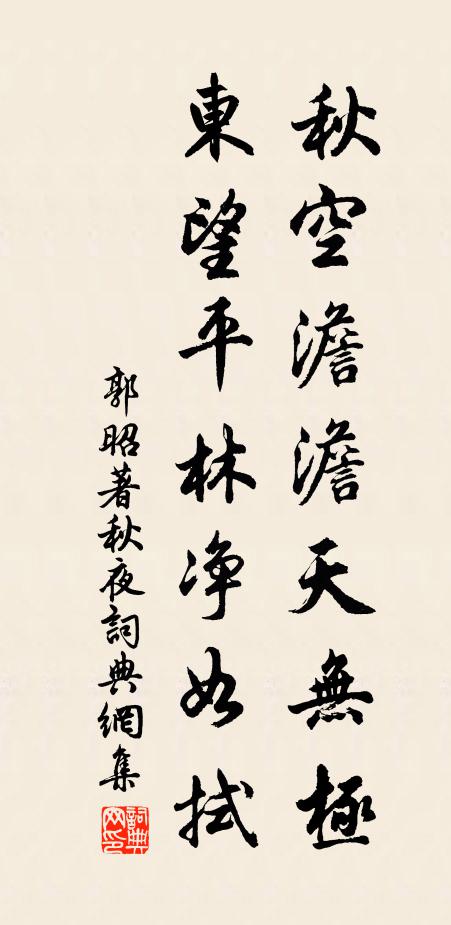 秋空澹澹天無極
東望平林净如拭
郭昭著秋夜詞典網集
詞典網印